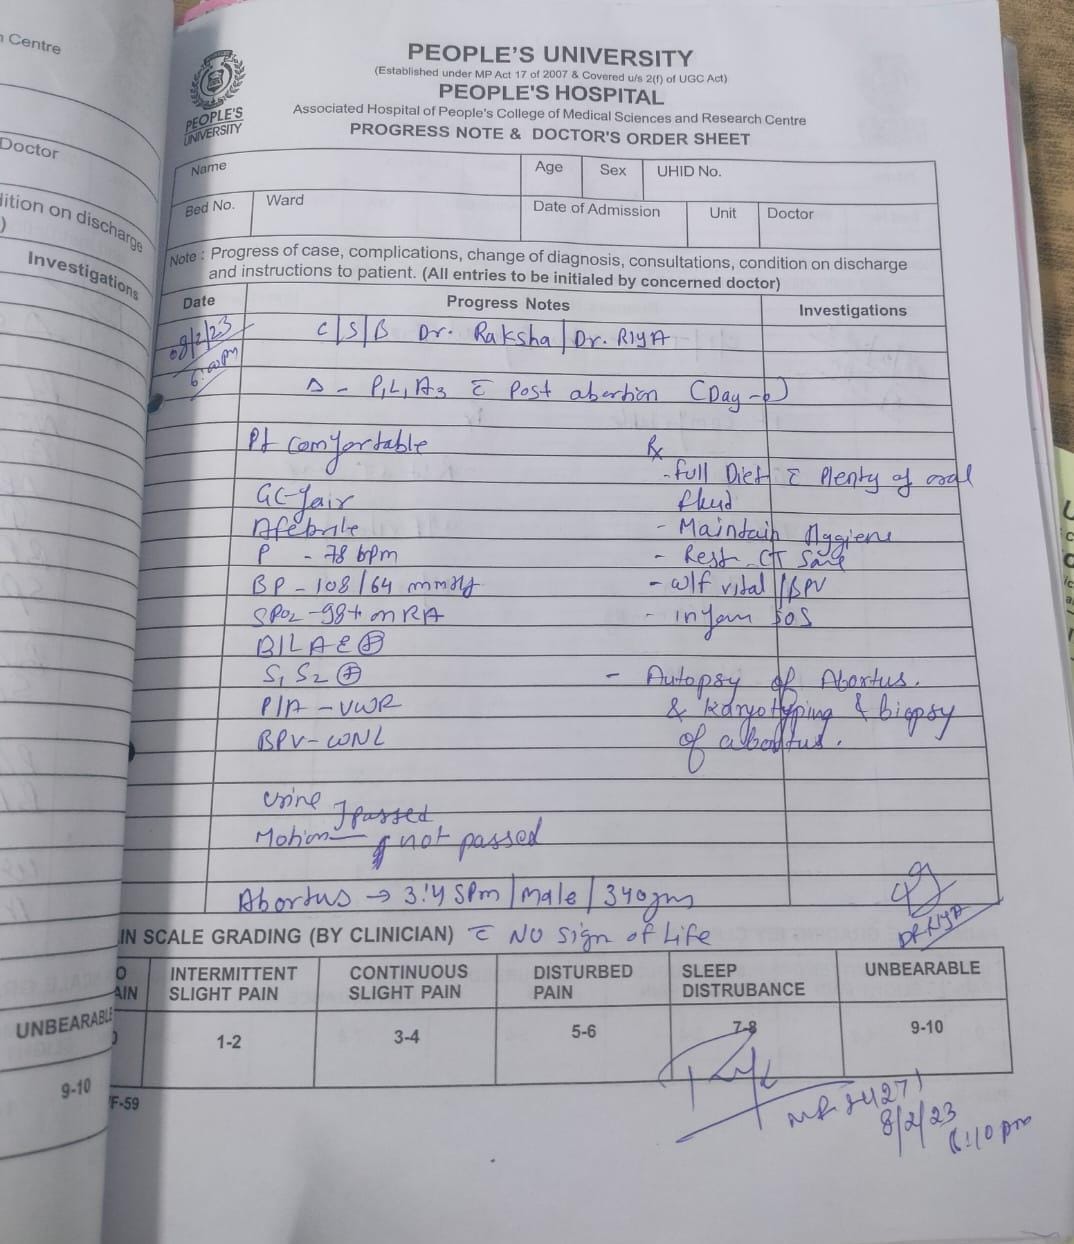 n Centre
Doctor
dition on discharge
)
Investigations
UNBEARABLE
9-10
PEOPLE'S UNIVERSITY
PEOPLE'S UNIVERSITY
(Established under MP Act 17 of 2007 & Covered u/s 2(f) of UGC Act)
PEOPLE'S HOSPITAL
Associated Hospital of People's College of Medical Sciences and Research Centre
PROGRESS NOTE & DOCTOR'S ORDER SHEET
Name Age Sex UHID No.
Bed No. Ward Date of Admission Unit Doctor
Note : Progress of case, complications, change of diagnosis, consultations, condition on discharge
and instructions to patient. (All entries to be initialed by concerned doctor)
Date Progress Notes Investigations
08/2/23 C/S/B Dr. Raksha / Dr. RIYA
6:00pm
Δ - P1L1A3 c̄ Post abortion (Day-0)
Pt comfortable Rx
- Full Diet c̄ Plenty of oral
GC-fair fluid
Afebrile - Maintain Hygiene
P - 78 bpm - Rest CT Same
BP - 108/64 mmHg - w/f vital / BPV
SPO2 - 98% on RA - inform SOS
B/L AE ⊕
S1 S2 ⊕ - Autopsy of Abortus.
P/A - UWR & Karyotyping & biopsy
BPV - WNL of abortus.
Urine passed
Motion not passed
Abortus → 3:45pm / male / 340gm
IN SCALE GRADING (BY CLINICIAN) c̄ NO Sign of Life
DR RIYA
O AIN INTERMITTENT SLIGHT PAIN CONTINUOUS SLIGHT PAIN DISTURBED PAIN SLEEP DISTRUBANCE UNBEARABLE
1-2 3-4 5-6 7-8 9-10
F-59
8/2/23
6:10 pm